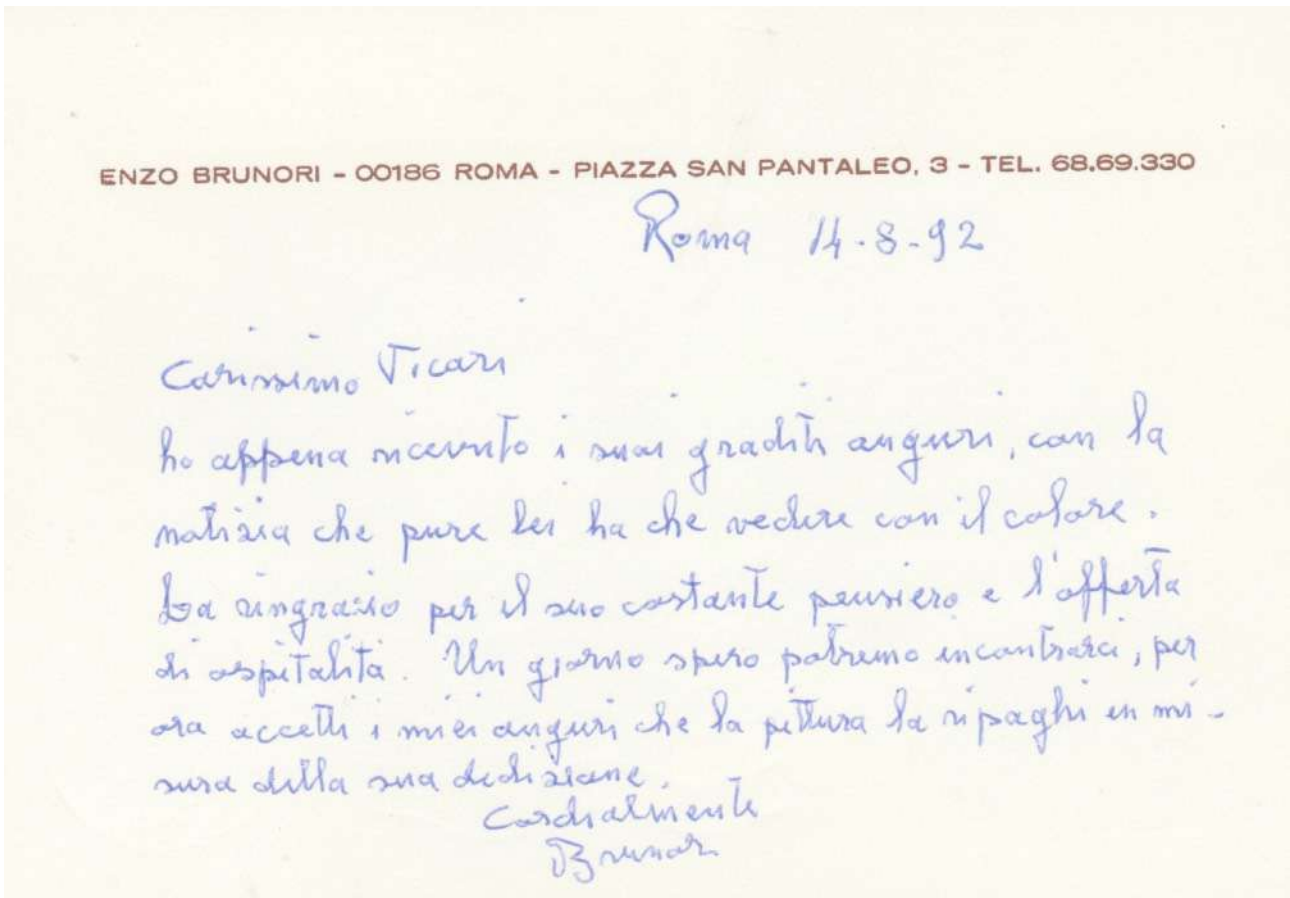 ENZO BRUNORI - 00186 ROMA - PIAZZA SAN PANTALEO, 3 - TEL. 68.69.330
Roma 14-8-92
Carissimo Vicari
ho appena ricevuto i suoi graditi auguri, con la
notizia che pure lei ha che vedere con il colore.
La ringrazio per il suo costante pensiero e l'offerta
di ospitalità. Un giorno spero potremo incontrarci, per
ora accetti i miei auguri che la pittura la ripaghi in mi-
sura della sua dedizione.
Cordialmente
Brunori